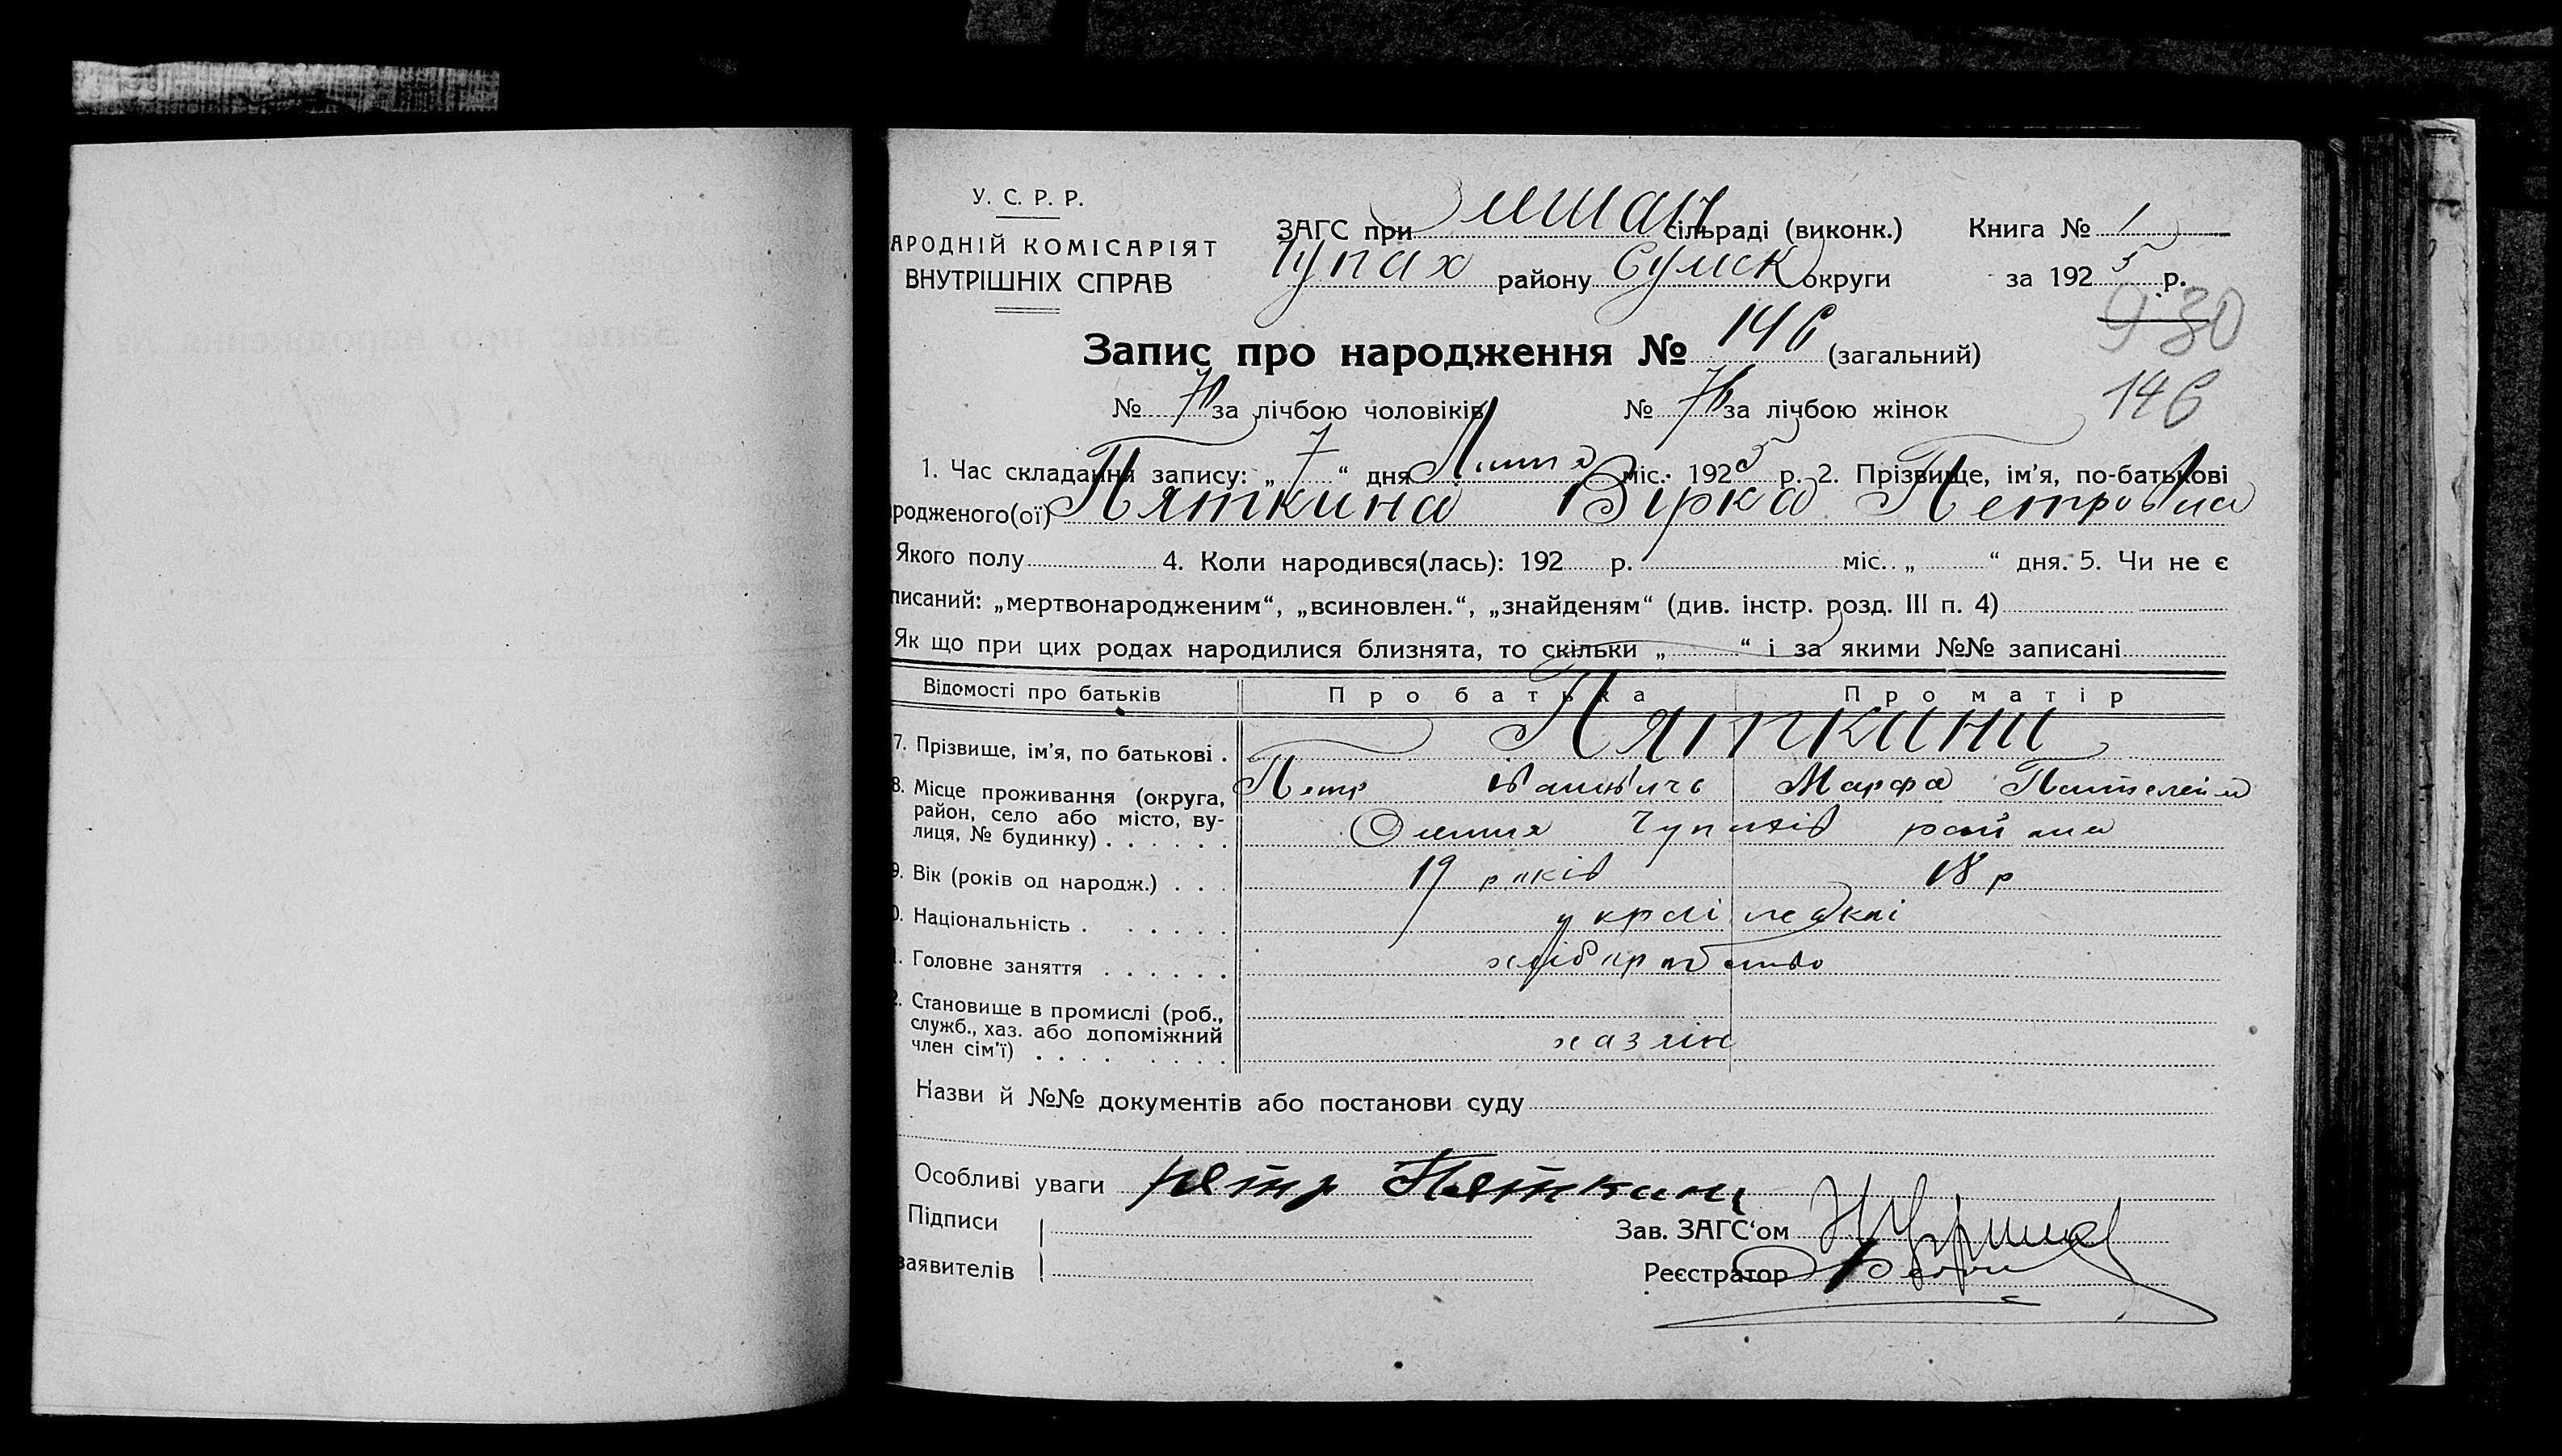 У. С. Р. Р.
АРОДНІЙ КОМІСАРІЯТ
ВНУТРІШНІХ СПРАВ
ЗАГС при сільраді (виконк.) Книга № 1
Чупах району Сумск округи за 1925 р.
930
Запис про народження № 146 (загальний)
146
№ за лічбою чоловіків № за лічбою жінок
1. Час складання запису: „ 7 “ дня Липня міс. 1925 р. 2. Прізвище, ім’я, по-батькові
родженого(ої) Пяткина Вірка Петровна
Якого полу 4. Коли народився(лась): 192 р. міс. „ “ дня. 5. Чи не є
писаний: „мертвонародженим“, „всиновлен.“, „знайденям“ (див. інстр. розд. III п. 4)
Як що при цих родах народилися близнята, то скільки „ “ і за якими №№ записані
Відомості про батьків Про батька Про матір
7. Прізвище, ім’я, по батькові . Пяткини
Петр Иванович Марфа
8. Місце проживання (округа,
район, село або місто, ву-
лиця, № будинку) . . . . . .
9. Вік (років од народж.) . . . 19 років 18 р
0. Національність . . . . . .
1. Головне заняття . . . . . .
2. Становище в промислі (роб.,
служб., хаз. або допоміжний
член сім’ї) . . . . . . . .
хазяін
Назви й №№ документів або постанови суду
Особливі уваги Петр Пяткин
Підписи
Зав. ЗАГС‘ом
заявителів
Реєстратор